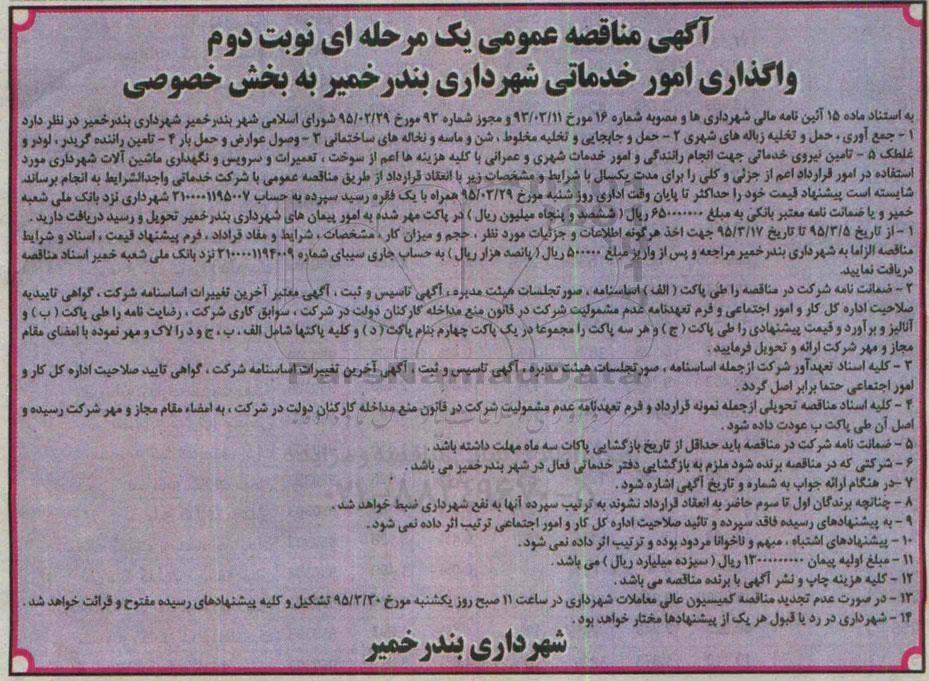 آگهی مناقصه عمومی یک مرحله ای نوبت دوم
واگذاری امور خدماتی شهرداری بندرخمیر به بخش خصوصی
به استناد ماده ۱۵ آئین نامه مالی شهرداری ها و مصوبه شماره ۱۶ مورخ ۹۳/۰۳/۱۱ و مجوز شماره ۹۳ مورخ ۹۵/۰۲/۲۹ شورای اسلامی شهر بندرخمیر شهرداری بندرخمیر در نظر دارد
۱ - جمع آوری ، حمل و تخلیه زباله های شهری ۲ - حمل و جابجایی و تخلیه مخلوط ، شن و ماسه و نخاله های ساختمانی ۳ - وصول عوارض و حمل بار ۴ - تامین راننده گریدر ، لودر و
غلطک ۵ - تامین نیروی خدماتی جهت انجام رانندگی و امور خدمات شهری و عمرانی با کلیه هزینه ها اعم از سوخت ، تعمیرات و سرویس و نگهداری ماشین آلات شهرداری مورد
استفاده در امور قرارداد اعم از جزئی و کلی را برای مدت یکسال با شرایط و مشخصات زیر با انعقاد قرارداد از طریق مناقصه عمومی با شرکت خدماتی واجدالشرایط به انجام برساند.
شایسته است پیشنهاد قیمت خود را حداکثر تا پایان وقت اداری روز شنبه مورخ ۹۵/۰۳/۲۹ همراه با یک فقره رسید سپرده به حساب ۳۱۰۰۰۰۱۱۹۵۰۰۷ شهرداری نزد بانک ملی شعبه
خمیر و یا ضمانت نامه معتبر بانکی به مبلغ ۶۵۰۰۰۰۰۰۰ ریال ( ششصد و پنجاه میلیون ریال ) در پاکت مهر شده به امور پیمان های شهرداری بندرخمیر تحویل و رسید دریافت دارید .
۱ - از تاریخ ۹۵/۳/۵ تا تاریخ ۹۵/۳/۱۷ جهت اخذ هرگونه اطلاعات و جزئیات مورد نظر ، حجم و میزان کار ، مشخصات ، شرایط و مفاد قراداد ، فرم پیشنهاد قیمت ، اسناد و شرایط
مناقصه الزاما به شهرداری بندرخمیر مراجعه و پس از واریز مبلغ ۵۰۰۰۰۰ ریال ( پانصد هزار ریال ) به حساب جاری سیبای شماره ۳۱۰۰۰۰۱۱۹۴۰۰۹ نزد بانک ملی شعبه خمیر اسناد مناقصه
دریافت نمایید.
۲ - ضمانت نامه شرکت در مناقصه را طی پاکت ( الف ) اساسنامه ، صورتجلسات هیئت مدیره ، آگهی تاسیس و ثبت ، آگهی معتبر آخرین تغییرات اساسنامه شرکت ، گواهی تاییدیه
صلاحیت اداره کل کار و امور اجتماعی و فرم تعهدنامه عدم مشمولیت شرکت در قانون منع مداخله کارکنان دولت در شرکت ، سوابق کاری شرکت ، رضایت نامه را طی پاکت ( ب ) و
آنالیز و برآورد و قیمت پیشنهادی را طی پاکت ( ج ) و هر سه پاکت را مجموعا در یک پاکت چهارم بنام پاکت ( د ) و کلیه پاکتها شامل الف ، ب ، ج و د را لاک و مهر نموده با امضای مقام
مجاز و مهر شرکت ارائه و تحویل فرمایید .
۳ - کلیه اسناد تعهدآور شرکت ازجمله اساسنامه ، صورتجلسات هیئت مدیره ، آگهی تاسیس و ثبت ، آگهی آخرین تغییرات اساسنامه شرکت ، گواهی تایید صلاحیت اداره کل کار و
امور اجتماعی حتما برابر اصل گردد .
۴ - کلیه اسناد مناقصه تحویلی ازجمله نمونه قرارداد و فرم تعهدنامه عدم مشمولیت شرکت در قانون منع مداخله کارکنان دولت در شرکت ، به امضاء مقام مجاز و مهر شرکت رسیده و
اصل آن طی پاکت ب عودت داده شود .
۵ - ضمانت نامه شرکت در مناقصه باید حداقل از تاریخ بازگشایی پاکات سه ماه مهلت داشته باشد .
۶ - شرکتی که در مناقصه برنده شود ملزم به بازگشایی دفتر خدماتی فعال در شهر بندرخمیر می باشد .
۷ -در هنگام ارائه جواب به شماره و تاریخ آگهی اشاره شود .
۸ - چنانچه برندگان اول تا سوم حاضر به انعقاد قرارداد نشوند به ترتیب سپرده آنها به نفع شهرداری ضبط خواهد شد .
۹ - به پیشنهادهای رسیده فاقد سپرده و تائید صلاحیت اداره کل کار و امور اجتماعی ترتیب اثر داده نمی شود .
۱۰ - پیشنهادهای اشتباه ، مبهم و ناخوانا مردود بوده و ترتیب اثر داده نمی شود .
۱۱ - مبلغ اولیه پیمان ۱۳۰۰۰۰۰۰۰۰۰ ریال ( سیزده میلیارد ریال ) می باشد .
۱۲ - کلیه هزینه چاپ و نشر آگهی با برنده مناقصه می باشد .
۱۳ - در صورت عدم تجدید مناقصه کمیسیون عالی معاملات شهرداری در ساعت ۱۱ صبح روز یکشنبه مورخ ۹۵/۳/۳۰ تشکیل و کلیه پیشنهادهای رسیده مفتوح و قرائت خواهد شد .
۱۴ - شهرداری در رد یا قبول هر یک از پیشنهادها مختار خواهد بود .
شهرداری بندرخمیر
ParsNamadData